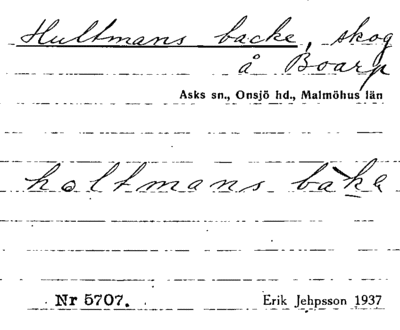 Hultmans backe, skog
å Boarp
Asks sn., Onsjö hd., Malmöhus län
holtmans baka
Nr 5707.
Erik Jehpsson 1937